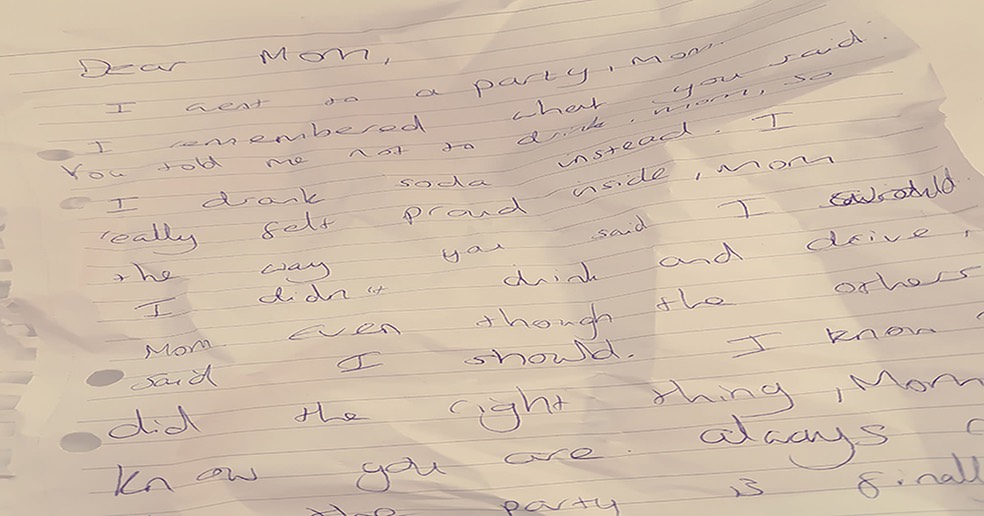 Dear Mom,
I went to a party, Mom.
I remembered what you said.
You told me not to drink, mom, so
I drank soda instead. I
really felt proud inside, Mom
the way you said I would
I didn't drink and drive,
Mom even though the others
said I should. I know
did the right thing, Mom
know you are always
the party is finall